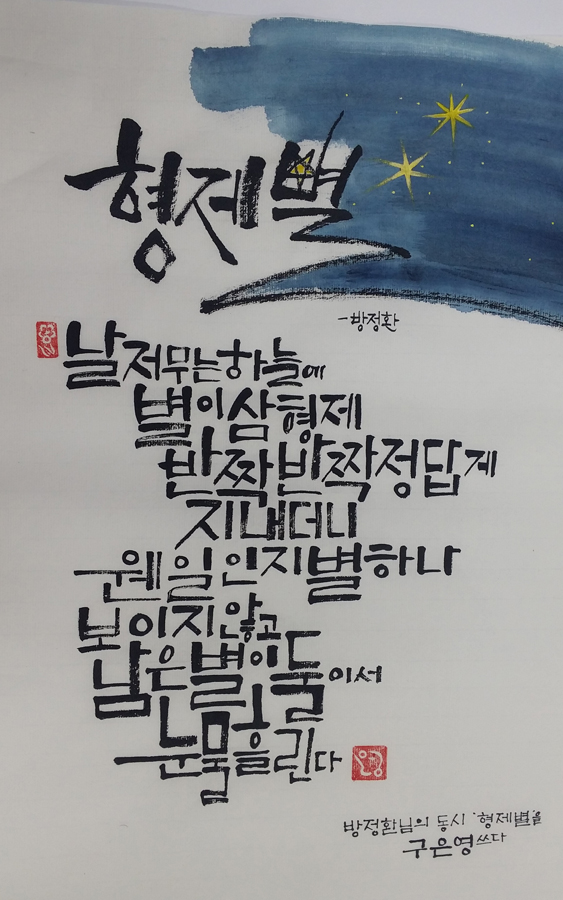 형제별
-방정환
날 저무는 하늘에
별이 삼형제
반짝반짝 정답게
지내더니
웬일인지 별하나
보이지 않고
남은 별이 둘이서
눈물 흘린다
방정환님의 동시 '형제별'을
구은영 쓰다